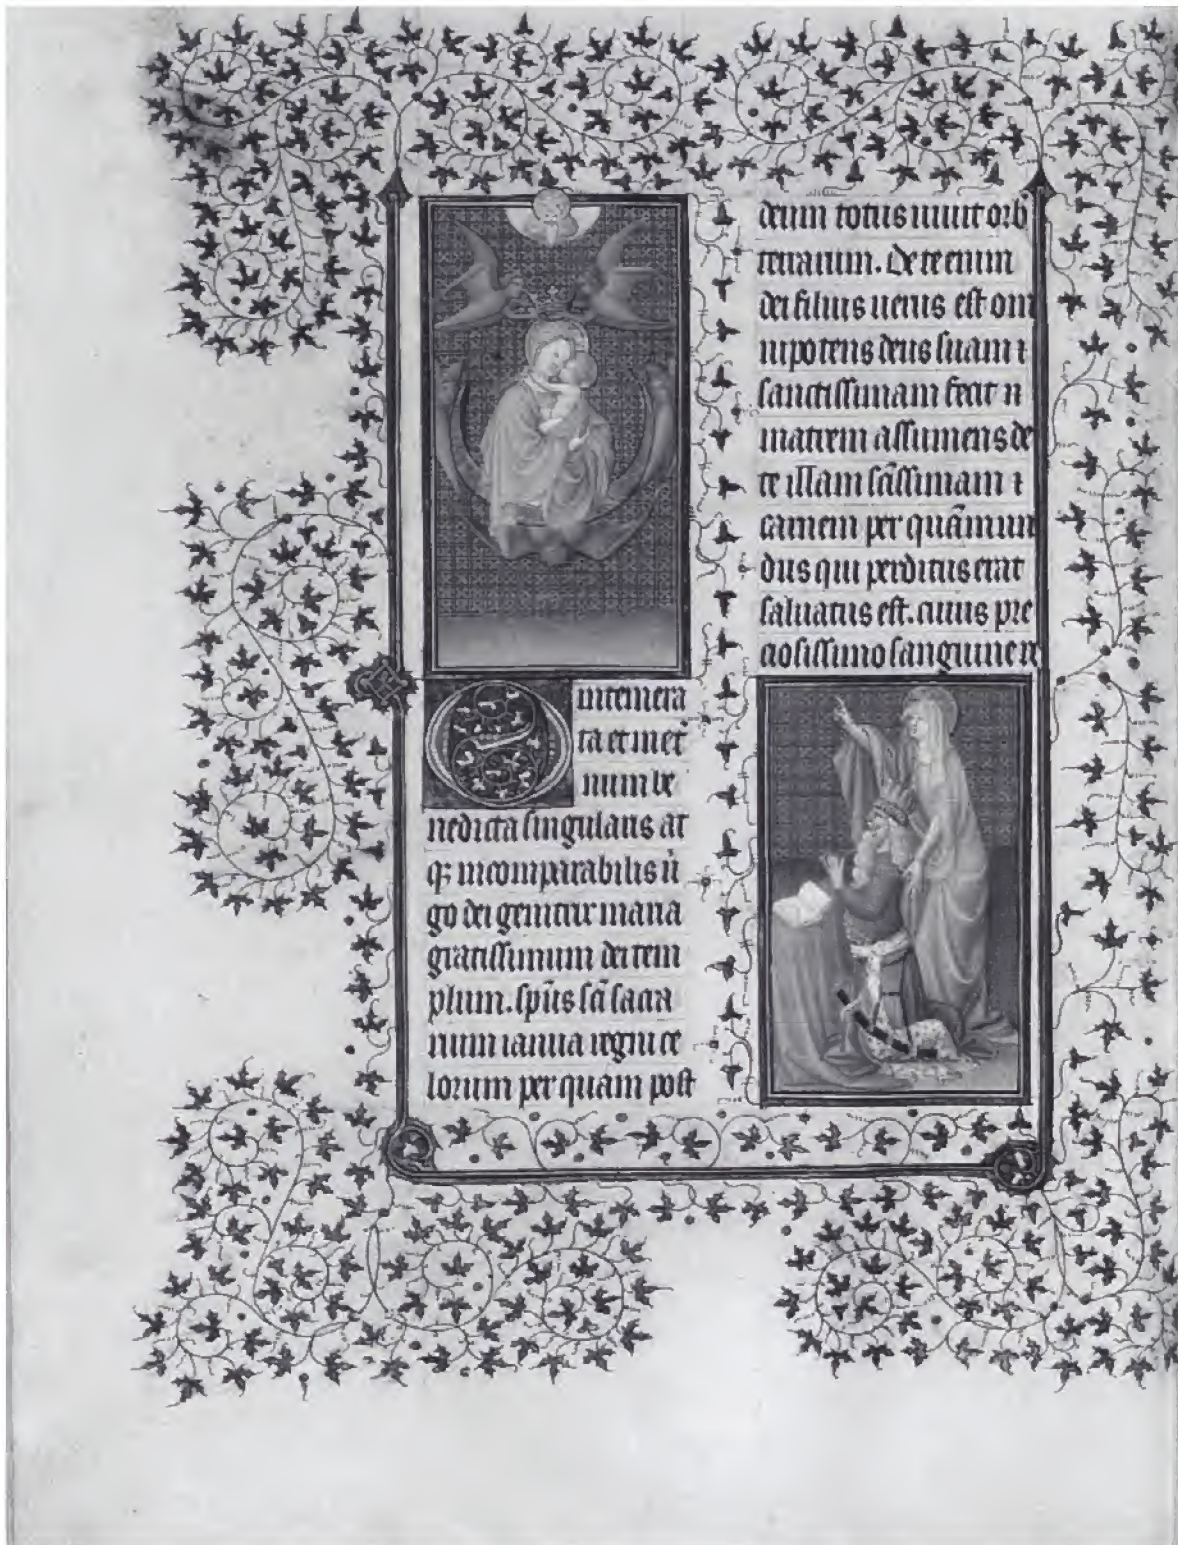 O intemera
ta et in et̄
num be
nedicta singularis at
qꝫ incomparabilis ū
go dei genitrix maria
gratissimum dei tem
plum. sp̄us sc̄i sacra
rium ianua regni ce
lorum per quam post
deum totus uiuit orb̉
terrarum. De te enim
dei filius uerus est om
nipotens deus suam ⁊
sanctissimam fecit
matrem assumens de
te illam sc̄issimam ⁊
carnem per quā mun
dus qui perditus erat
saluatus est. cuius pre
ciosissimo sanguine